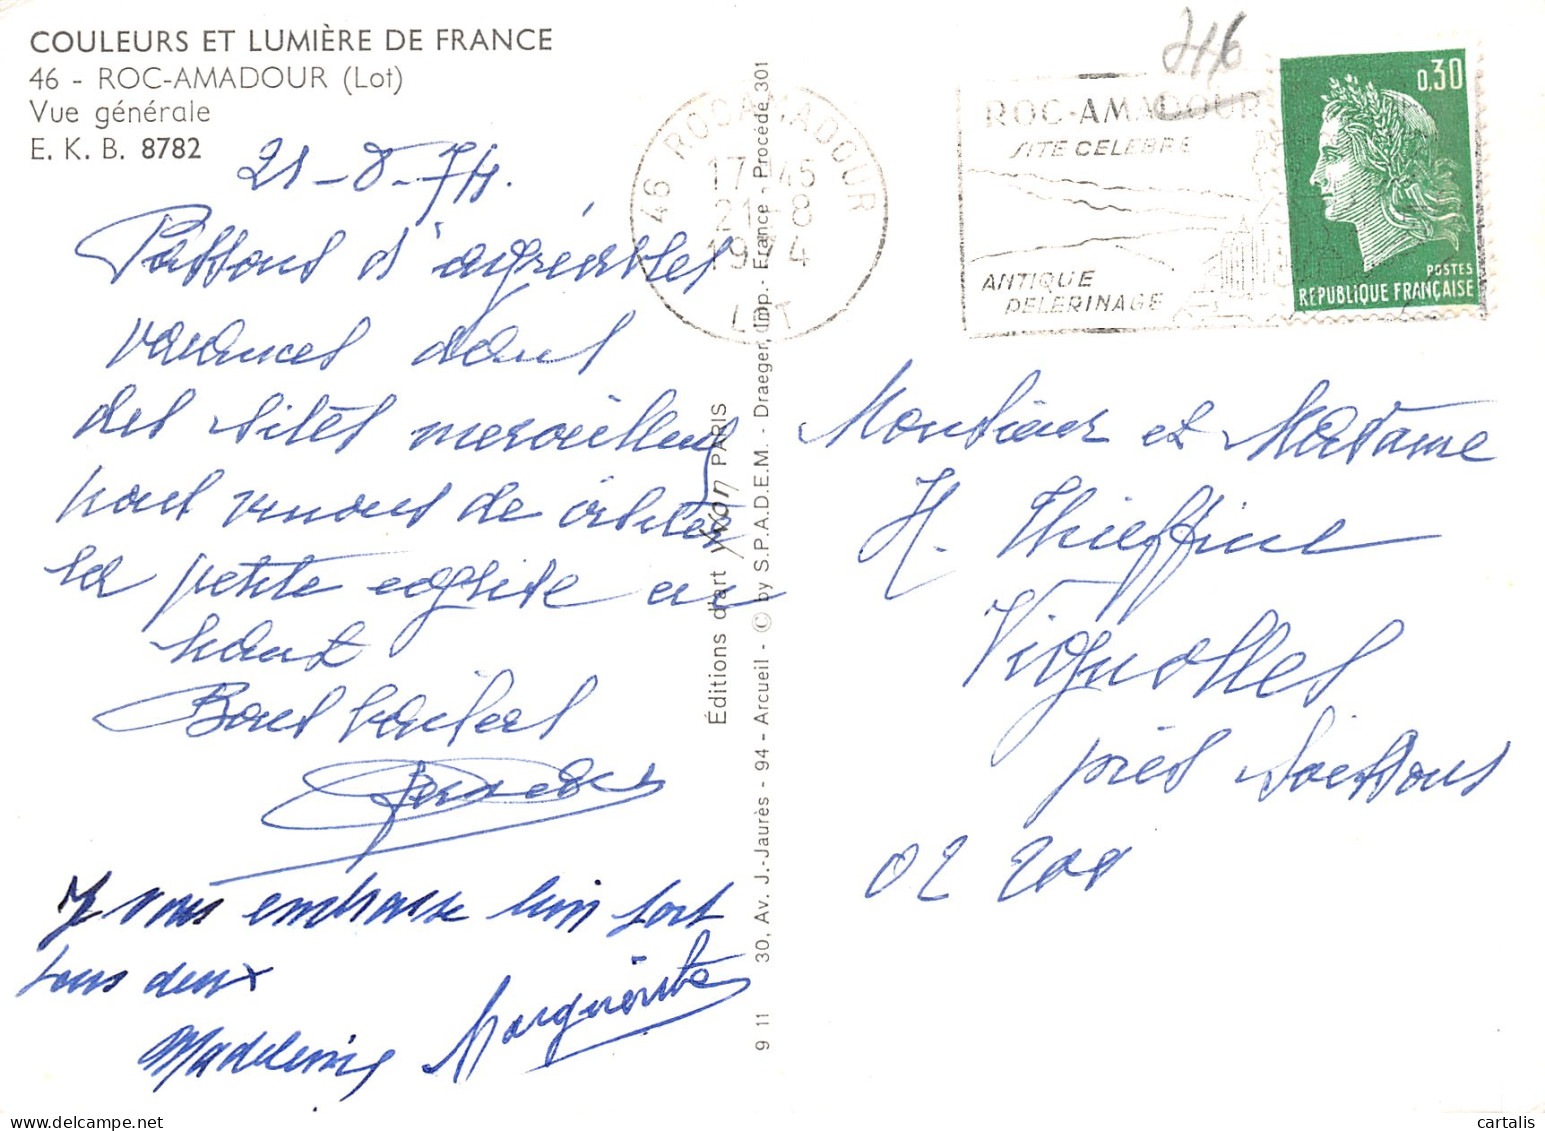 COULEURS ET LUMIÈRE DE FRANCE
46 - ROC-AMADOUR (Lot)
Vue générale
E. K. B. 8782
21-8-74.
Passons d'agréables
vacances dans
des sites merveilleux
nous venons de visiter
la petite eglise en
haut
Bons baisers
Je vous embrasse bien fort
tous deux
Madeleine Marguerite
Éditions d'art yvon PARIS
30, Av. J.-Jaurès - 94 - Arcueil - © by S.P.A.D.E.M. - Draeger, Imp. - France - Procédé 301
9 11
46 ROCAMADOUR
17H45
21-8
1974
LOT
ROC-AMADOUR
SITE CELEBRE
ANTIQUE
PELERINAGE
0,30
POSTES
REPUBLIQUE FRANÇAISE
Monsieur et Madame
H. Thieffine
Vignolles
près Soissons
02 200
cartalis